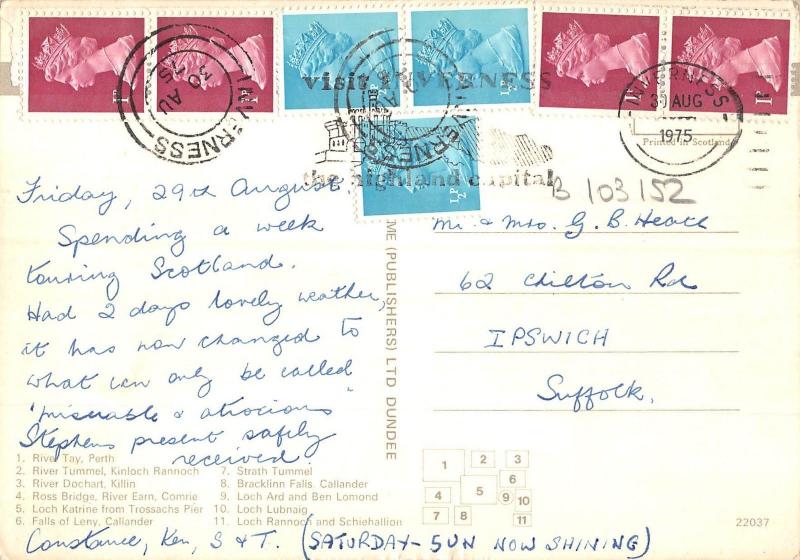 1P
1P
½P
½P
1P
1P
½P
INVERNESS
30 AU
INVERNESS
visit INVERNESS
the highland capital
INVERNESS
30 AUG
1975
Printed in Scotland
B 103152
Friday, 29th August.
Spending a week
touring Scotland.
Had 2 days lovely weather,
it has now changed to
what can only be called
"miserable & atrocious"
Stephens present safely
received.
Constance, Ken, S & T. (SATURDAY - SUN NOW SHINING)
ME (PUBLISHERS) LTD DUNDEE
Mr. & Mrs. G. B. Heath
62 Chilton Rd
IPSWICH
Suffolk.
1. River Tay, Perth
2. River Tummel, Kinloch Rannoch
3. River Dochart, Killin
4. Ross Bridge, River Earn, Comrie
5. Loch Katrine from Trossachs Pier
6. Falls of Leny, Callander
7. Strath Tummel
8. Bracklinn Falls, Callander
9. Loch Ard and Ben Lomond
10. Loch Lubnaig
11. Loch Rannoch and Schiehallion
1
2
3
4
5
6
7
8
9
10
11
22037